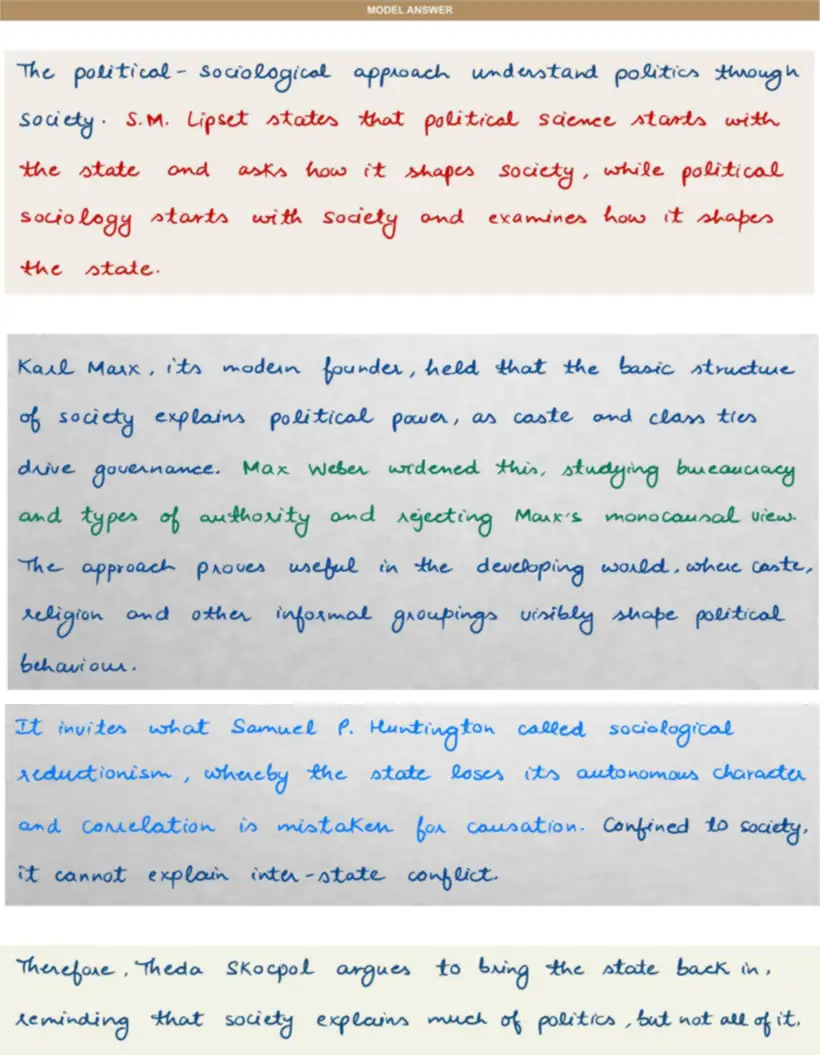 MODEL ANSWER
The political - sociological approach understand politics through
society. S.M. Lipset states that political science starts with
the state and asks how it shapes society, while political
sociology starts with society and examines how it shapes
the state.
Karl Marx, its modern founder, held that the basic structure
of society explains political power, as caste and class ties
drive governance. Max Weber widened this, studying bureaucracy
and types of authority and rejecting Marx's monocausal view.
The approach proves useful in the developing world, where caste,
religion and other informal groupings visibly shape political
behaviour.
It invites what Samuel P. Huntington called sociological
reductionism, whereby the state loses its autonomous character
and correlation is mistaken for causation. Confined to society,
it cannot explain inter-state conflict.
Therefore, Theda Skocpol argues to bring the state back in,
reminding that society explains much of politics, but not all of it.